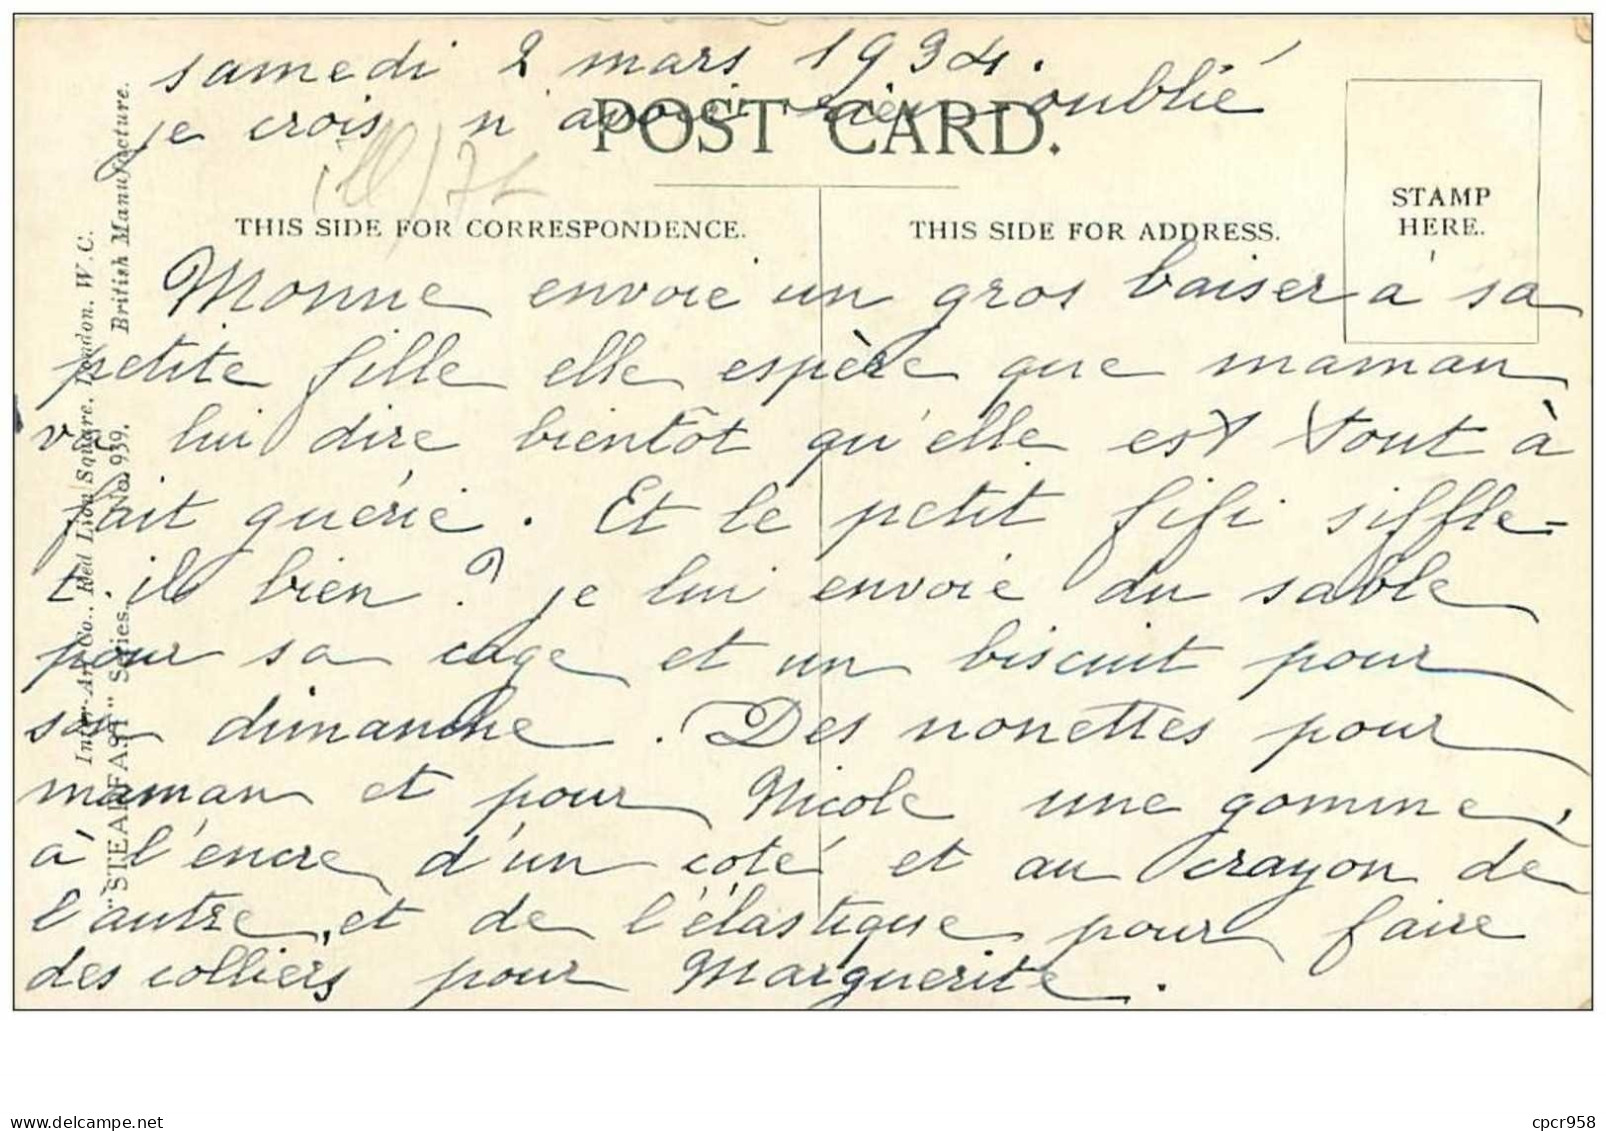 samedi 2 mars 1934.
je crois n'avoir rien oublié
POST CARD.
STAMP
HERE.
THIS SIDE FOR CORRESPONDENCE.
THIS SIDE FOR ADDRESS.
Monne envoie un gros baiser à sa
petite fille elle espère que maman
va lui dire bientôt qu'elle est tout à
fait guérie. Et le petit fifi siffle-
t-il bien? je lui envoie du sable
pour sa cage et un biscuit pour
son dimanche. Des nonettes pour
maman et pour Nicole une gomme,
à l'encre d'un coté et au crayon de
l'autre, et de l'élastique pour faire
des colliers pour Marguerite.
Inter-Art Co., Red Lion Square, London. W.C.
"STEADFAST" Series. No. 939. British Manufacture.
cpcr-photo.delcampe.net
cpcr958